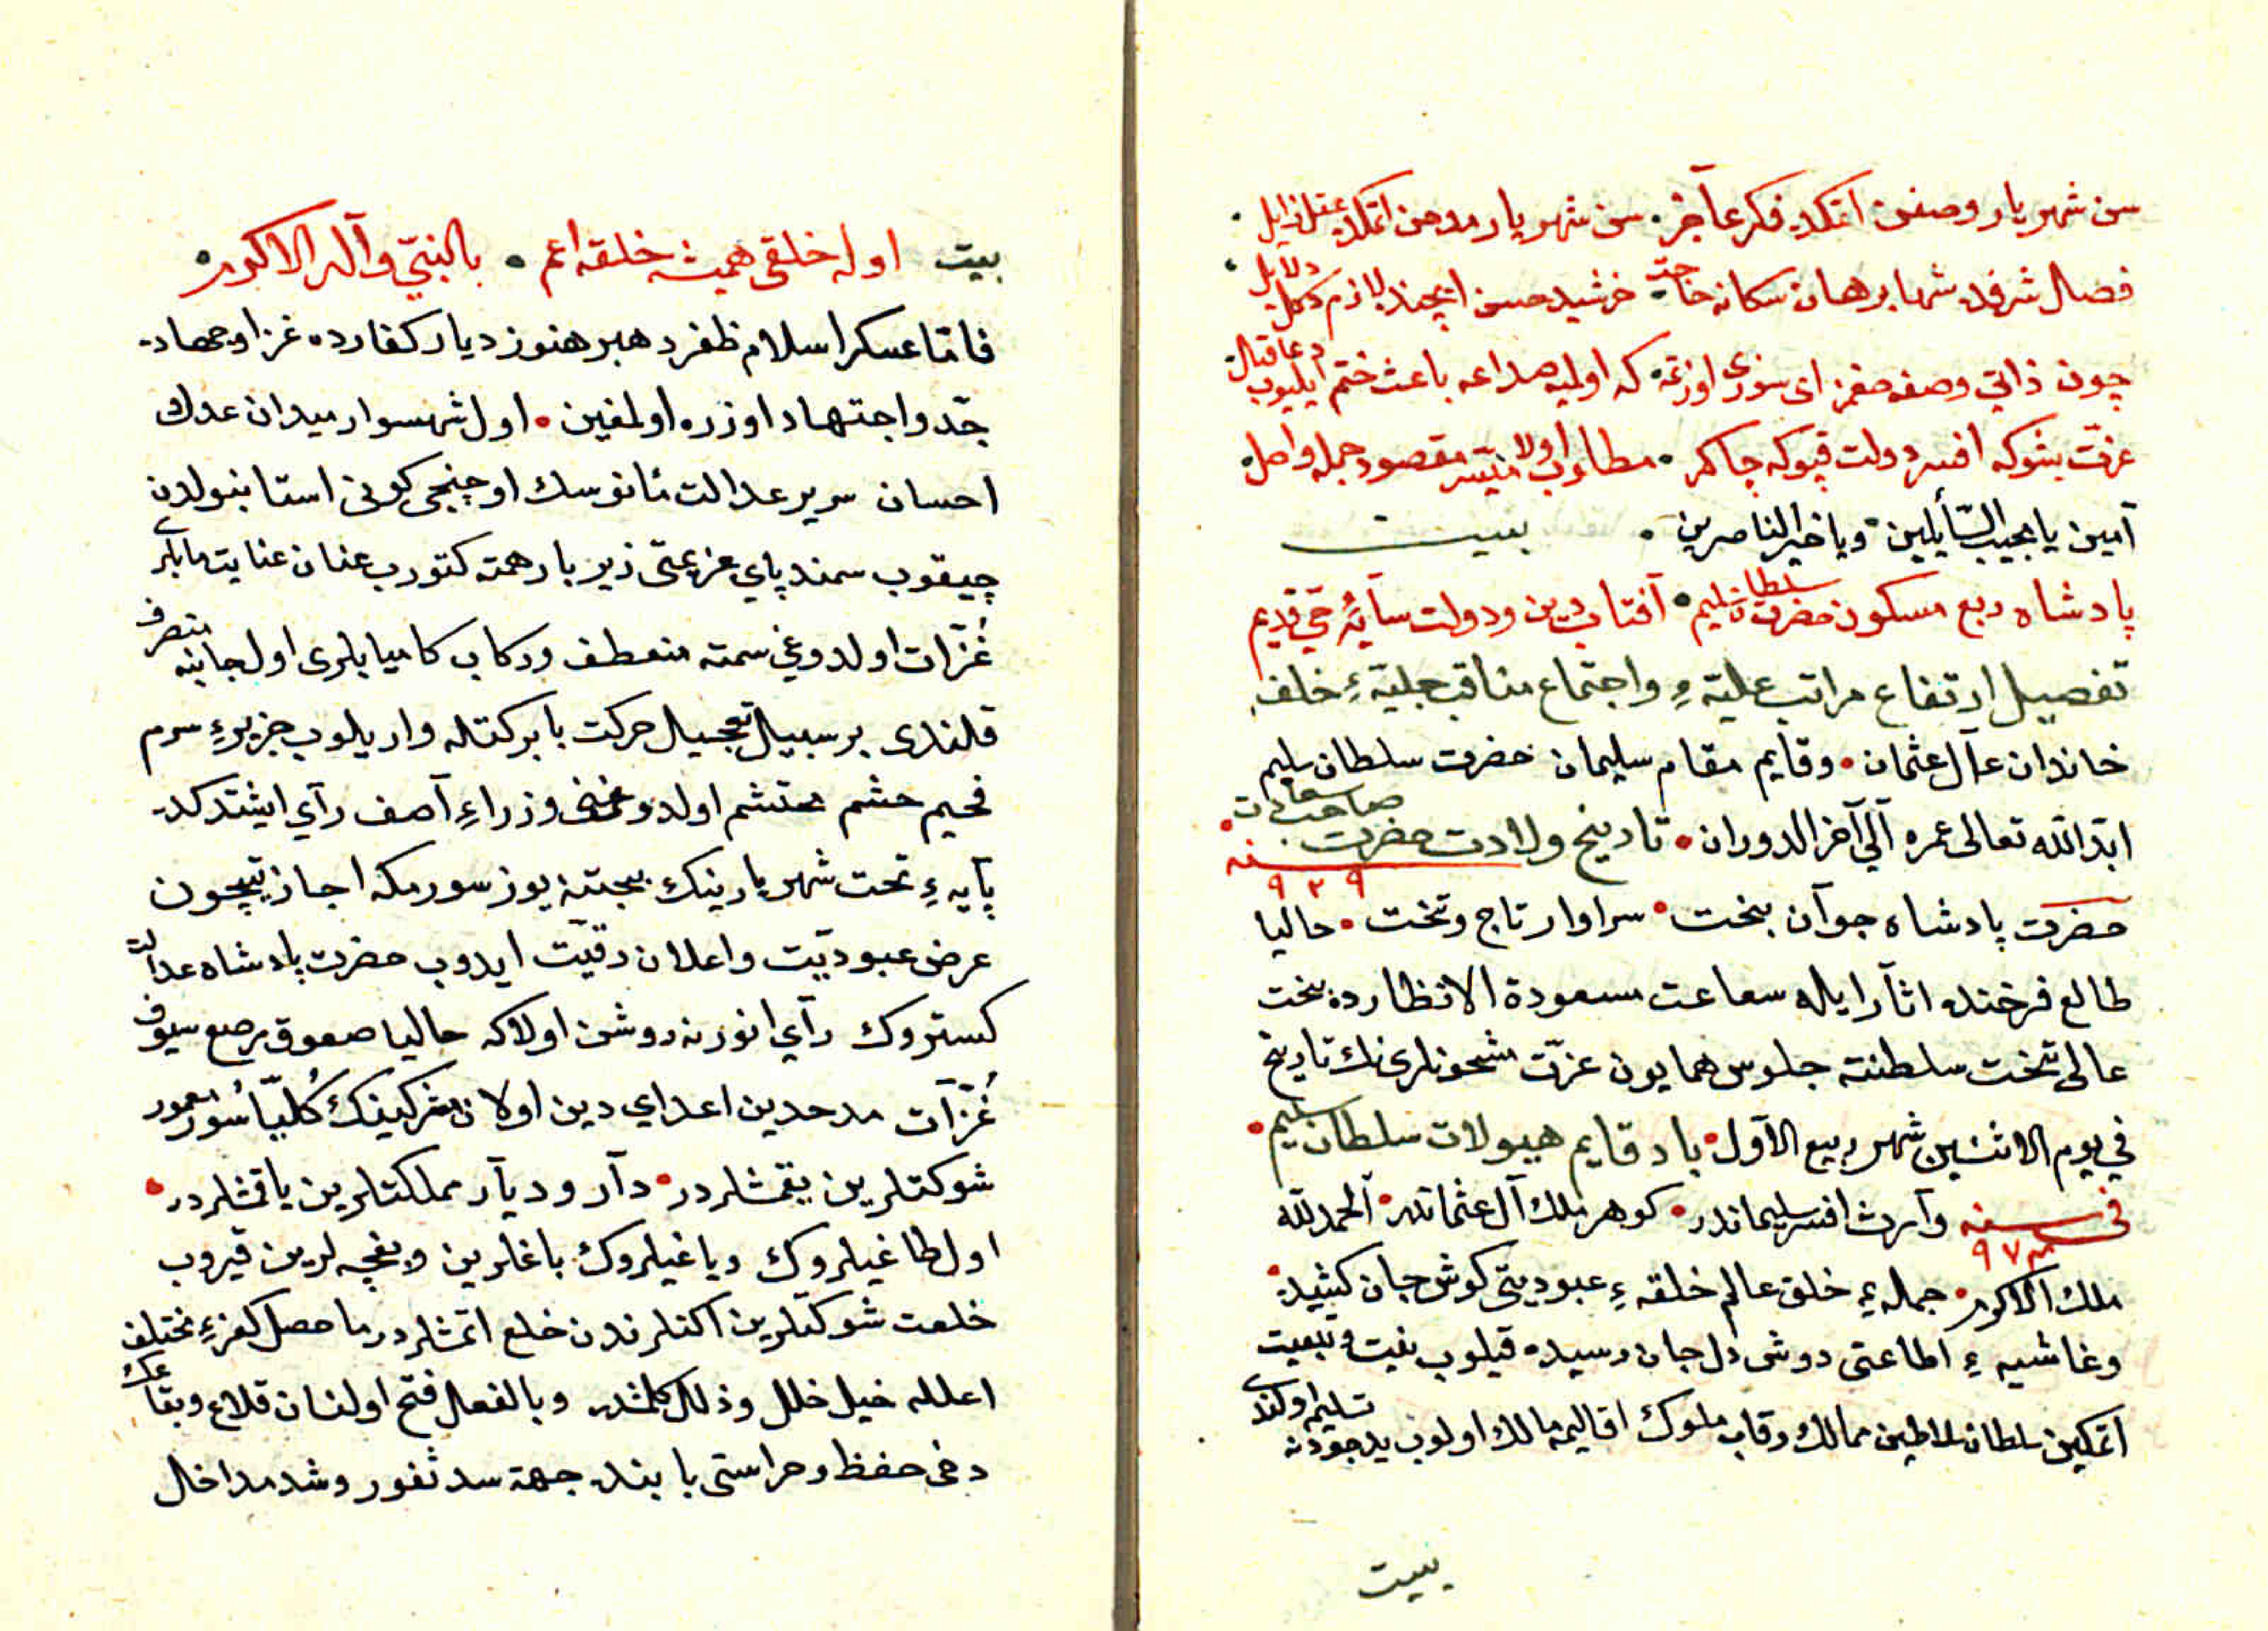 سن شهریار وصفن اتمکده فکر عآجز • سن شهریار مدحن اتمکده عقل زایل •
فضل شرفده شها برهان سکا نه حاجت • خرشید حسن ایچنده لازم دکل دلایل •
چون ذاتی وصفه صغمز ای سوزی اوزتمه • که اولمیه صداعه باعث ختم ایلیوب دعا قیل
عزت بنوکه افسر دولت قپوکه چاکر • مطلوب اولا میسر مقصود جمله واصل •
آمین یا مجیب السّأیلین • ویا خیر الناصرین • بیت
پادشاه ربع مسکون حضرت سلطان سلیم • آفتاب دین ودولت سآیۀ حی قدیم
تفصیل ارتفاع مراتب علیّۀ و واجتماع مناقب جلیّۀ خلف
خاندان عآل عثمان • وقایم مقام سلیمان حضرت سلطان سلیم
ابّد الله تعالی عمره آلی آخر الدوران • تاریخ ولادت حضرت صاحب سعادت • سنه ٩٢٩
حضرت پادشاه جوآن بخت • سراوار تاج وتخت • حالیا
طالع فرخنده اثآر ایله سعاعت مسعودة الانظارده بخت
عالی تخت سلطنته جلوس همایون عزّت مشحونلری نك تاریخ
في یوم الاثنین شهر ربیع الآول • باد قایم هیبولات سلطان سلیم •
فی سنه ٩٧٣ وآرث افسر سلیماندر • کوهر ملك آل عثماندر • آلحمد لله
ملك الاکرم • جملهء خلق عالم خلقهء عبودیتی کوش جان کشیده •
وغاشیهء اطاعتی دوش دل جان رسیده قیلوب بیعت وتبعیت
اتمکین سلطان سلاطین ممالك رقاب ملوك اقالیمه مالك اولوب ید جودنه تسلیم اولندی
بیت
بیت اوله خلقی همیشه خلقه اعم • بالنبّي وآله الاکرم •
فامّا عسکر اسلام ظفر رهبر هنوز دیار کفارده غزا وجهاد
جّد واجتهاد اوزره اولمغین • اول شهسوار میدان عدل
احسان سریر عدالت مأنوسك اوچنجی کونی استانبولدن
چیقوب سمند پای عزیمتی زیر بار همته کتورب عنان عنایت مابلری
غُزّات اولدوغی سمته منعطف ورکاب کامیابلری اول جانبه منصرف
قلندی بر سبیل تعجیل حرکت با برکتله واریلوب جزیرۀ سرم
فحیم حشم محتشم اولدوغنی وزراءِ آصف رآي ایشتدکده
پآیهء تحت شهریارینك بیجتنه یوز سورمکه اجازتیچون
عرض عبودیّت واعلان رقیّت ایدوب حضرت پادشاه عدالت
کستروك رآي انورنه روشن اولاکه حالیا صعوق مرصع سیوف
غُزّآت مدحدین اعدای دین اولان مشرکینك کُلیّاً سُور معمور
شوکتلرین یقمشلردر • دآر ودیآر مملکتلرین یاقمشلردر •
اول طاغیلروك ویاغیلروك باغلرین وبغچه لرین قیروب
خلعت شوکتلرین اکتلرندن خلع اتمشلردر ما حصل کفرۀ مختلف
اعلله خیل خلل وذلل کلمشدر وبالفعل فتح اولنان قلاع وبقاعك
دخی حفظ وحراستی بابنده جهة سد ثغور وشد مداخل